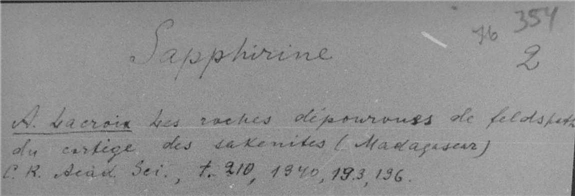 76 354
Sapphirine 2
A. Lacroix Les roches dépourvues de feldspath
du cortège des sakenites (Madagascar)
C. R. Acad. Sci., t. 210, 1940, 193, 196.